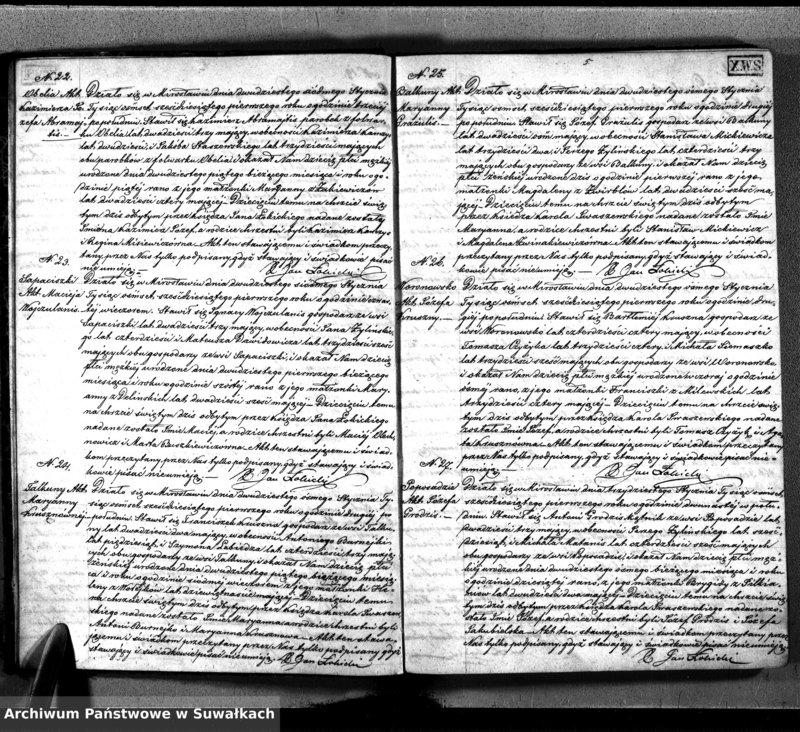 N. 22.
Obelia Akt
Kazimierza Jó
zefa Abramaj
tis. —
Działo się w Mirosławiu dnia dwudziestego siódmego Stycznia
Tysiąc ośmset sześćdziesiątego pierwszego roku o godzinie trzeciej
popołudniu. Stawił się Kazimierz Abramajtis parobek z folwar
ku Obelia lat dwadzieścia trzy mający, w obecności Kazimierza
lat dwadzieścia i Jakóba Staszewskiego lat trzydzieści mających
obu parobków z folwarku Obelia i okazał Nam dziecię płci męzkiej
urodzone dnia dwudziestego piątego bieżącego miesiąca i roku o go
dzinie piątej rano z jego małżonki Maryanny z Łukiewiczów
lat dwadzieścia cztery mającej. Dziecięciu temu na chrzcie świę
tym dziś odbytym przez Księdza Jana Łobickiego nadane zostały
Imiona Kazimierz Józef, a rodzice chrzestni byli Kazimierz
i Regina Misiewiczówna. Akt ten stawającemu i świadkom przeczy
tany przez Nas tylko podpisany, gdyż stawający i świadkowie pisać
nieumieją. — X. Jan Łobicki
N. 23.
Sapaciszki
Akt Macieja
Wojzulanis.
Działo się w Mirosławiu dnia dwudziestego siódmego Stycznia
Tysiąc ośmset sześćdziesiątego pierwszego roku o godzinie
wieczorem. Stawił się Ignacy Wojzulanis gospodarz ze wsi
Sapaciszki lat dwadzieścia trzy mający, w obecności Jana Żylińskie
go lat czterdzieści i Mateusza Dawidowicza lat trzydzieści sześć
mających obu gospodarzy ze wsi Sapaciszki i okazał Nam dziecię
płci męzkiej urodzone dnia dwudziestego pierwszego bieżącego
miesiąca i roku o godzinie szóstej rano z jego małżonki Mary
anny z lat dwadzieścia sześć mającej. Dziecięciu temu
na chrzcie świętym dziś odbytym przez Księdza Jana Łobickiego
nadane zostało Imie Maciej, a rodzice chrzestni byli Maciej
nowicz i Marta Baszkiewiczówna. Akt ten stawającemu i świad
kom przeczytany przez Nas tylko podpisany, gdyż stawający i świad
kowie pisać nieumieją. — X. Jan Łobicki
N. 24.
Talkuny Akt
Maryanny
Krusznównej
Działo się w Mirosławiu dnia dwudziestego ósmego Stycznia Ty
siąc ośmset sześćdziesiątego pierwszego roku o godzinie drugiej po
południu. Stawił się Franciszek Kruszna gospodarz ze wsi Talku
ny lat dwadzieścia dwa mający, w obecności Antoniego Burnejki
lat pięćdziesiąt i Szymona Labiedza lat czterdzieści trzy mają
cych obu gospodarzy ze wsi Talkuny, i okazał Nam dziecię płci
żeńskiej urodzone dnia dwudziestego piątego bieżącego miesią
ca i roku o godzinie siódmej wieczorem z jego małżonki He
leny z lat dziewiętnaście mającej. Dziecięciu temu
na chrzcie świętym dziś odbytym przez Księdza Karola Iwaszew
skiego nadane zostało Imie Maryanna, a rodzice chrzestni byli
Antoni Burnejko i Maryanna Krusznówna. — Akt ten stawa
jącemu i świadkom przeczytany przez Nas tylko podpisany, gdyż
stawający i świadkowie pisać nieumieją. X. Jan Łobicki
5
XWS
N. 25.
Balkuny Akt
Maryanny
Prażulis. —
Działo się w Mirosławiu dnia dwudziestego ósmego Stycznia
Tysiąc ośmset sześćdziesiątego pierwszego roku o godzinie drugiej
popołudniu. Stawił się Józef Prażulis gospodarz ze wsi Balkuny
lat dwadzieścia ośm mający, w obecności Stanisława Mickiewicza
lat trzydzieści dwa, i Jerzego Żylińskiego lat czterdzieści trzy
mających obu gospodarzy ze wsi Balkuny i okazał Nam dziecię
płci żeńskiej urodzone dziś o godzinie pierwszej rano, z jego
małżonki Magdaleny z Zwirblów lat dwadzieścia sześć ma
jącej. Dziecięciu temu na chrzcie świętym dziś odbytym
przez Księdza Karola Iwaszewskiego nadane zostało Imie
Maryanna, a rodzice chrzestni byli Stanisław Mickiewicz
i Magdalena Akt ten stawającemu i świadkom
przeczytany przez Nas tylko podpisany, gdyż stawający i świad
kowie pisać nieumieją. — X. Jan Łobicki
N. 26.
Woronowsko
Akt Józefa
Kruszny. —
Działo się w Mirosławiu dnia dwudziestego ósmego Stycznia
Tysiąc ośmset sześćdziesiątego pierwszego roku o godzinie dru
giej popołudniu. Stawił się Bartłomiej Kruszna, gospodarz ze
wsi Woronowsko lat czterdzieści cztery mający, w obecności
Tomasza Czyżyka lat trzydzieści cztery, i Michała Siemaszko
lat trzydzieści sześć mających obu gospodarzy ze wsi Woronowsko,
i okazał Nam dziecię płci męzkiej urodzone wczoraj o godzinie
ósmej rano, z jego małżonki Franciszki z Milewskich lat
trzydzieści cztery mającej. Dziecięciu temu na chrzcie świę
tym dziś odbytym przez Księdza Karola Iwaszewskiego nadane
zostało Imie Józef, a rodzice chrzestni byli Tomasz Czyżyk i Aga
ta Krusznówna. — Akt ten stawającemu i świadkom przeczytany
przez Nas tylko podpisany, gdyż stawający i świadkowie pisać nie
umieją. — X. Jan Łobicki
N. 27.
Poposadzie
Akt Józefa
Grodzis. —
Działo się w Mirosławiu dnia trzydziestego Stycznia Tysiąc ośmset
sześćdziesiątego pierwszego roku o godzinie dwunastej w połu
dnie. Stawił się Antoni Grodzis kątnik ze wsi Poposadzie lat
trzy mający, w obecności Jerzego Żylińskiego lat sześć
dziesiąt, i Michała Matanis lat czterdzieści sześć mających
obu gospodarzy ze wsi Poposadzie, i okazał Nam dziecię płci męz
kiej urodzone dnia dwudziestego ósmego bieżącego miesiąca i roku
o godzinie dziesiątej rano, z jego małżonki Brygidy z
lat dwadzieścia dwa mającej. Dziecięciu temu na chrzcie świę
tym dziś odbytym przez Księdza Karola Iwaszewskiego nadane zo
stało Imie Józef, a rodzice chrzestni byli Józef Grodzis i Józefa
Jakubielska. — Akt ten stawającemu i świadkom przeczytany przez
Nas tylko podpisany, gdyż stawający i świadkowie pisać nieumieją.
X. Jan Łobicki
Archiwum Państwowe w Suwałkach